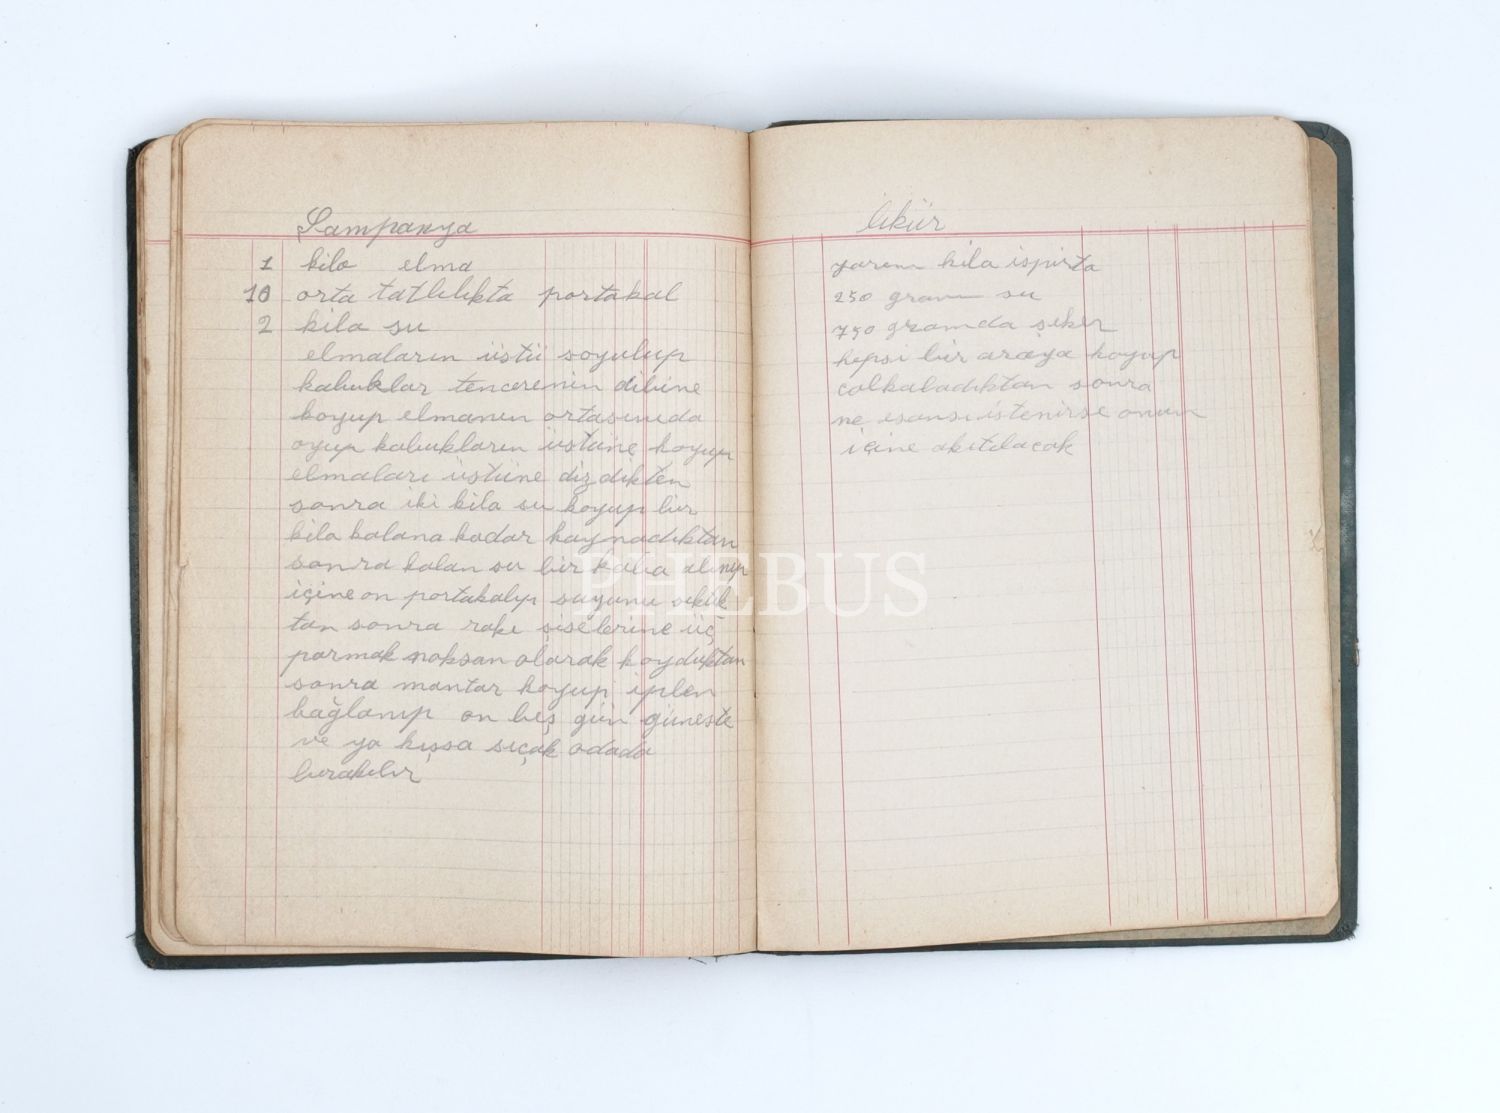 Şampanya
1 kilo elma
10 orta tatlılıkta portakal
2 kila su
elmaların üstü soyulup
kabuklar tencerenin dibine
koyup elmanın ortasınıda
oyup kabukların üstüne koyup
elmaları üstüne dizdikten
sonra iki kila su koyup bir
kila kalana kadar kaynadıktan
sonra kalan su bir kaba alınıp
içine on portakalın suyunu sıktık
tan sonra rakı şişelerine üç
parmak noksan olarak koyduktan
sonra mantar koyup iplen
bağlanıp on beş gün güneşte
ve ya kışsa sıçak odada
bırakılır
likür
yarım kila ispirto
250 gram su
750 gramda şeker
hepsi bir araya koyup
çalkaladıktan sonra
ne esansı istenirse onun
içine akıtılacak
PHEBUS